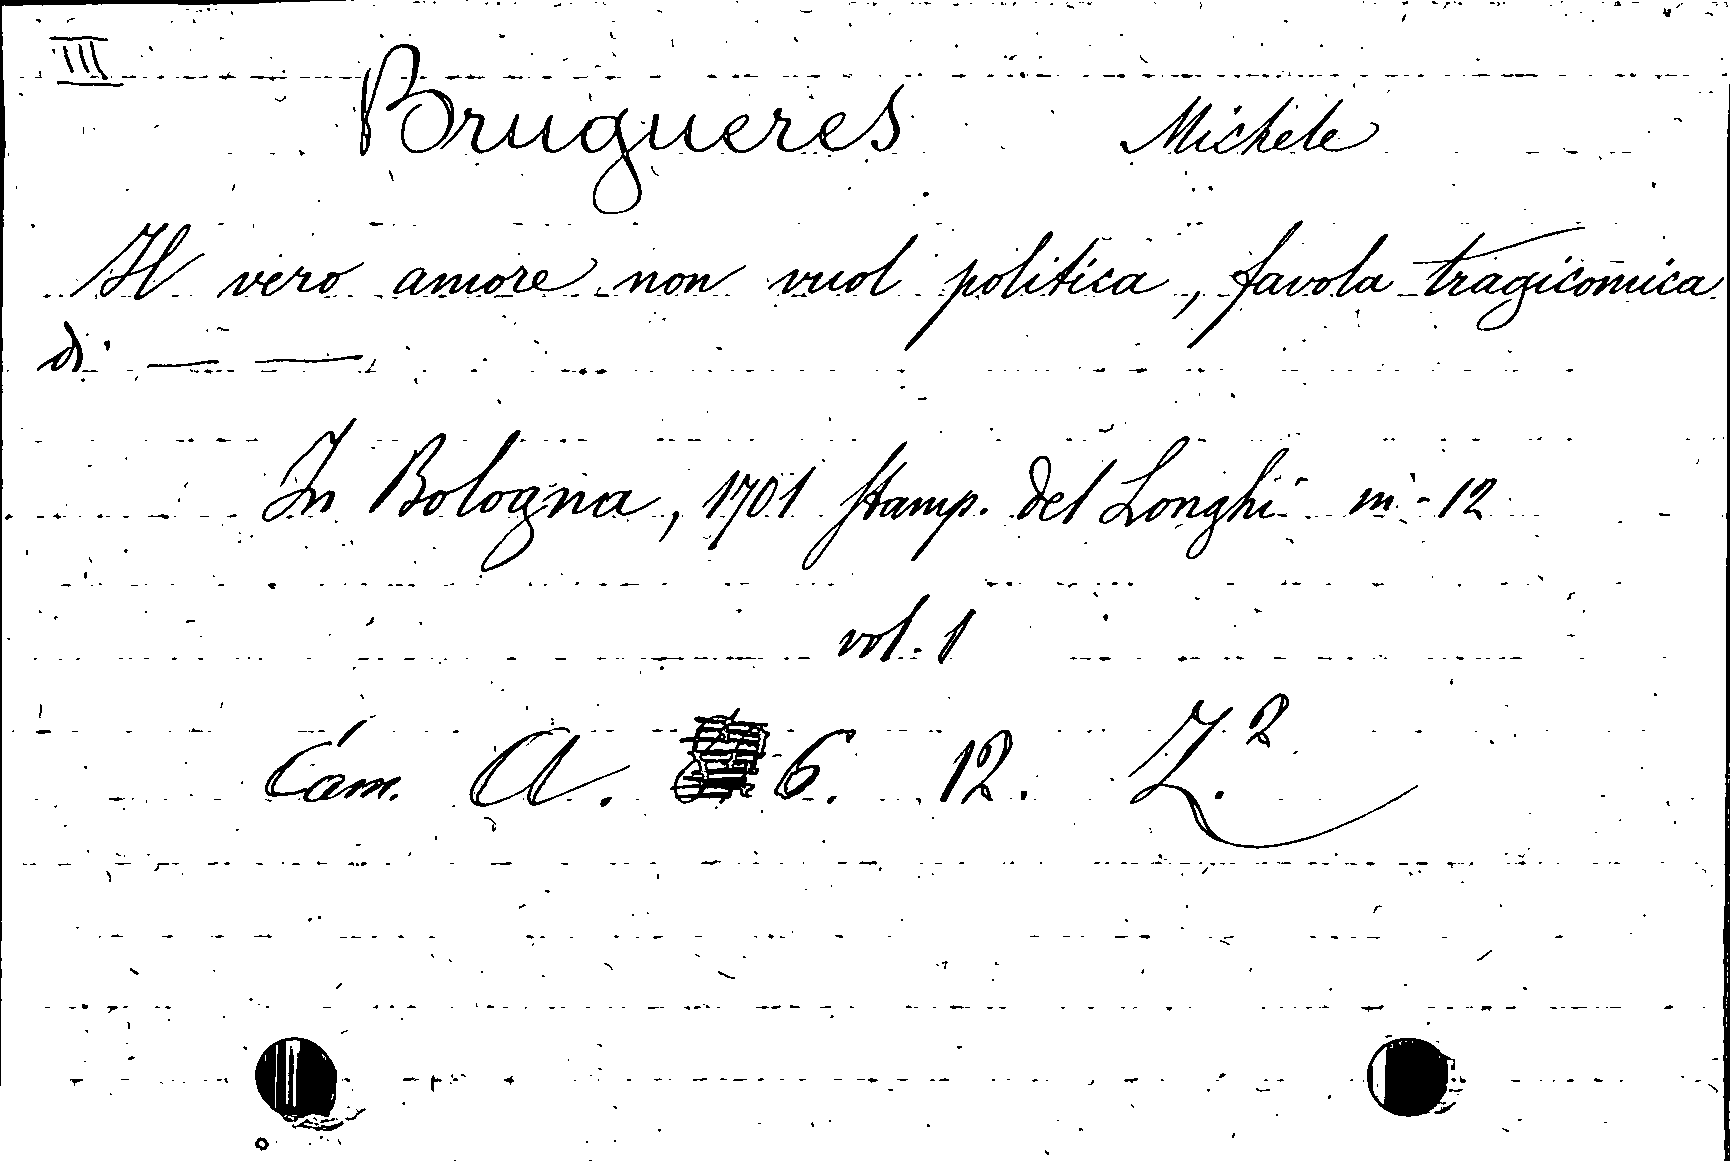 III
Brugueres Michele
Il vero amore non vuol politica, favola tragicomica
di — —
In Bologna, 1701 Stamp. del Longhi in-12
vol. 1
Cam. A. 6. 12. Z.2